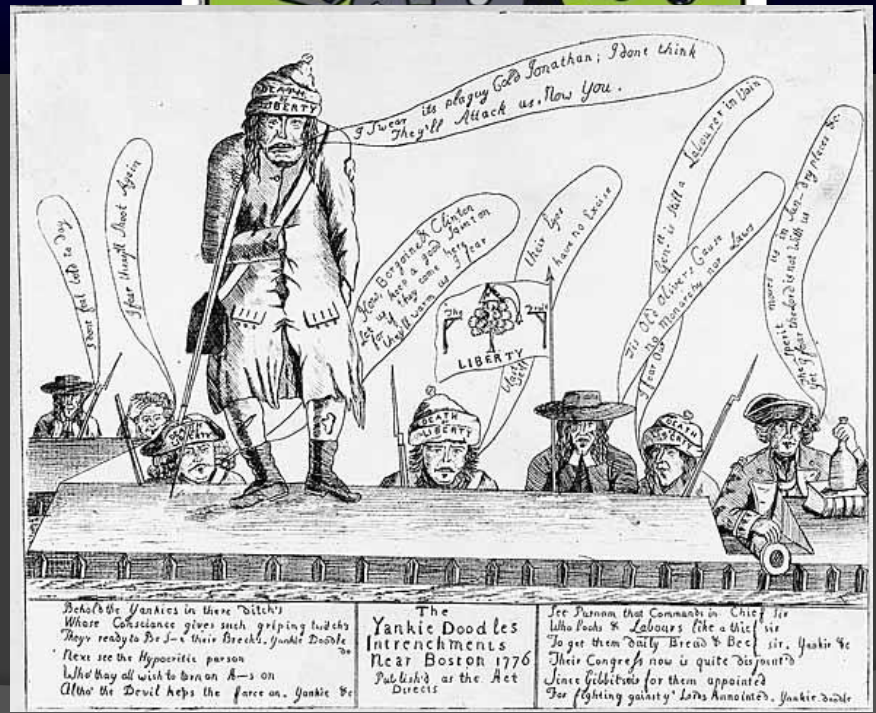 DEATH
or
LIBERTY
I Swear its plaguy Cold Jonathan; I dont think
They'll Attack us, Now You.
I dont feel bold to day
I fear they'll shoot Again
How, Borgoine & Clinton
let us keep a good
for if they come here
they'll warm us I fear
their Lyes
have no Excise
The
LIBERTY
Gen.ll is still a Labourer in Vain
Tis Old Olivers Cause
no Monarchy nor Laws
I fear Our
The Sperit moves us in Sun-dry places &c.
Yet I fear the Lord is not With us
DEATH
LIBERTY
DEATH
or
LIBERTY
DEATH
or
LIBERTY
Behold the Yankies in there ditch's
Whose Conscience gives such griping twitch's
They'r ready to Be S—t their Brech's. Yankie Doodle
do
Next see the Hypocritic parson
Who thay all wish to turn an A—s on
Altho' the Devil keps the farce on. Yankie &c
The
Yankie Doodles
Intrenchments
Near Boston 1776
Publish'd as the Act
Directs
See Putnam that Commands in Chief Sir
Who looks & Labours like a thief sir
To get them daily Bread & Beef sir. Yankie &c
Their Congress now is quite disjoint'd
Since Gibbits is for them appointed
For fighting gainsty' Lords Annointed. Yankie doodle